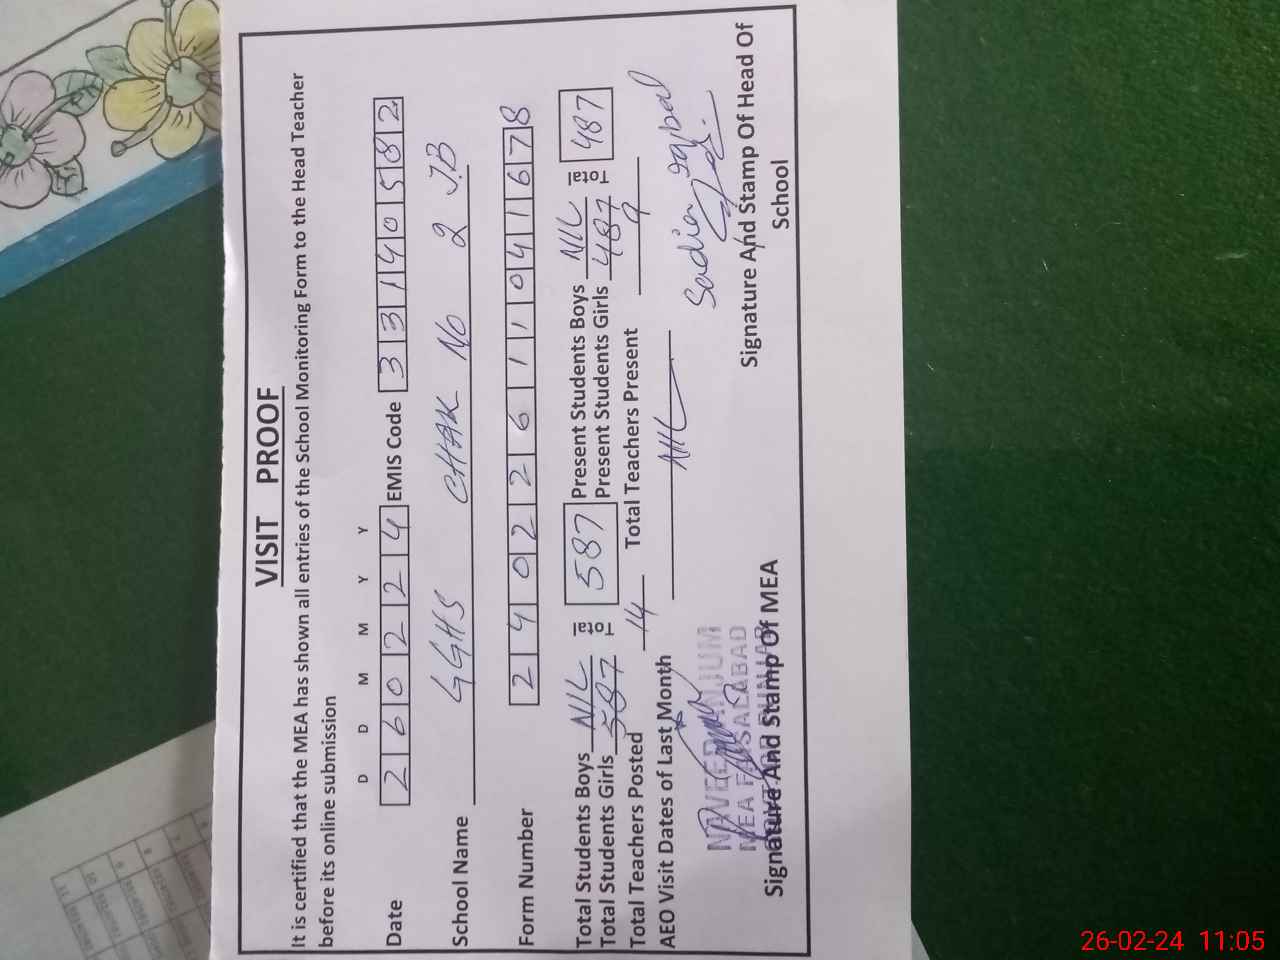 VISIT PROOF
It is certified that the MEA has shown all entries of the School Monitoring Form to the Head Teacher
before its online submission
D D M M Y Y
Date 2 6 0 2 2 4 EMIS Code 3 3 1 4 0 5 8 2
School Name GGHS CHAK No 2 J.B
Form Number 2 4 0 2 2 6 1 1 0 4 1 6 7 8
Total Students Boys NIL Total 587 Present Students Boys NIL Total 487
Total Students Girls 587 Present Students Girls 487
Total Teachers Posted 14 Total Teachers Present 9
AEO Visit Dates of Last Month NIL
Sadia Iqbal
NAVEED ANJUM
MEA FAISALABAD
Signature And Stamp Of MEA
Signature And Stamp Of Head Of
School
26-02-24 11:05